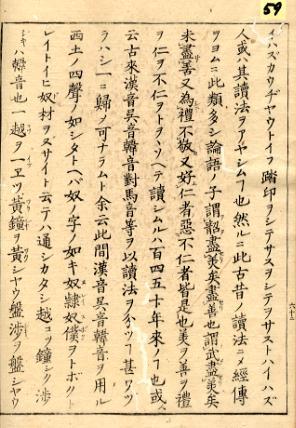 59
イハズカウヂヤウトイフ踏印ヲシテサスヲシテヲサストハイハズ
人或ハ其讀法ヲアヤシムフ也然ルニ此古昔ノ讀法ニメ經傳
ヲヨムニ此類多シ論語ノ子謂韶盡美矣盡善也謂武盡美矣
未盡善又爲禮不敬又好仁者惡不仁者皆是也美ヲ善ヲ禮
ヲ仁ヲ不仁ヲトヲソヘテ讀シムルハ百四五十年來ノフ也或
云古來漢音呉音韓音對馬音等ヲ以讀法ヲ分ツフ甚ワ
ラハシ一ニ歸ノ可ナラムト余云此間漢音呉音韓音ヲ用ル
西土ノ四聲ノ如シタトヘバ奴ノ字ノ如キ奴隷奴僕ヲトホク
レイトイヒ奴材ヲヌサイト云テハ通シカタシ越コヲ鐘シク渉
トキハ韓音也一越ヲ一ヱツ黃鐘ヲ黃シヤウ盤渉ヲ盤シヤウ
六十三